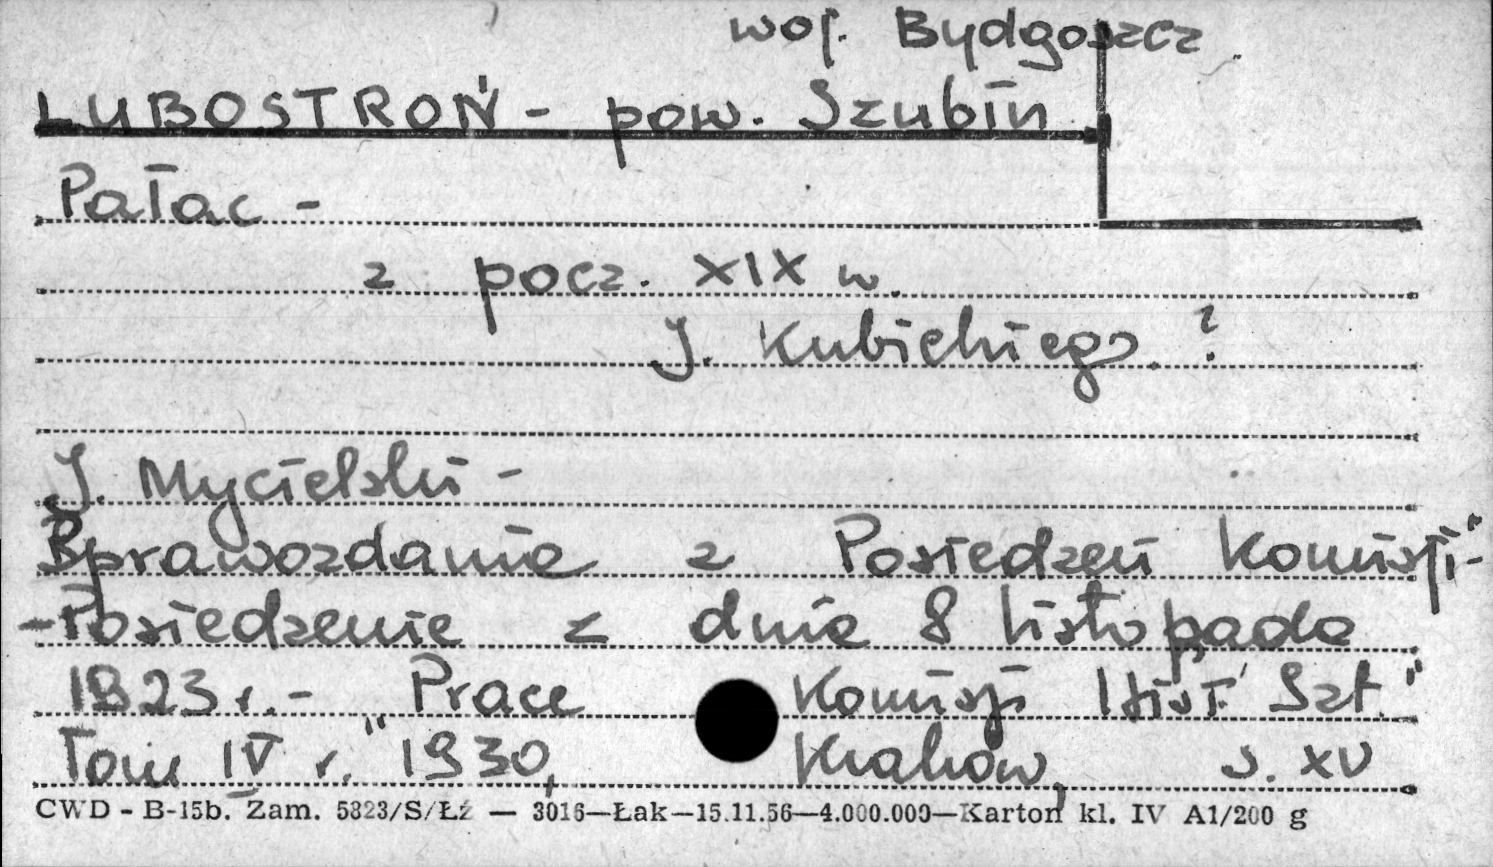 woj. Bydgoszcz
LUBOSTROŃ - pow. Szubin
Pałac -
z pocz. XIX w.
J. Kubickiego ?
J. Mycielski -
Sprawozdanie z Posiedzeń Komisji"-
-Posiedzenie z dnia 8 listopada
1923 r. - Prace Komisji Hist. Szt."
Tom IV r. 1930, Kraków, s. XV
CWD - B-15b. Zam. 5823/S/Łź — 3016—Łak—15.11.56—4.000.000—Karton kl. IV A1/200 g